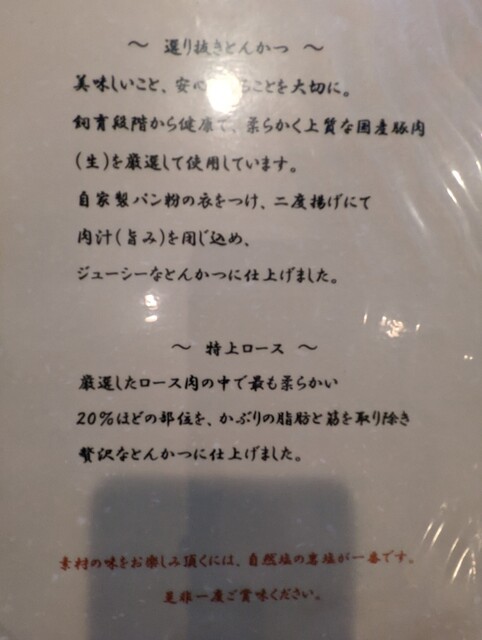 ～ 選り抜きとんかつ ～
美味しいこと、安心ることを大切に。
飼育段階から健康で、柔らかく上質な国産豚肉
(生)を厳選して使用しています。
自家製パン粉の衣をつけ、二度揚げにて
肉汁(旨み)を閉じ込め、
ジューシーなとんかつに仕上げました。
～ 特上ロース ～
厳選したロース肉の中で最も柔らかい
20%ほどの部位を、かぶりの脂肪と筋を取り除き
贅沢なとんかつに仕上げました。
素材の味をお楽しみ頂くには、自然塩の岩塩が一番です。
是非一度ご賞味ください。